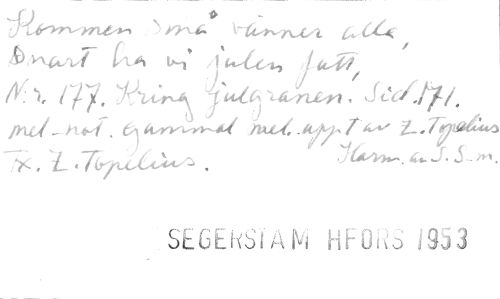 Kommen små vänner alla,
Snart ha vi julen fått,
Nr. 177. Kring julgranen. Sid. 171.
mel-not. Gammal mel. uppt av Z. Topelius
Tx. Z. Topelius. Harm. av S. S-m.
SEGERSTAM HFORS 1953